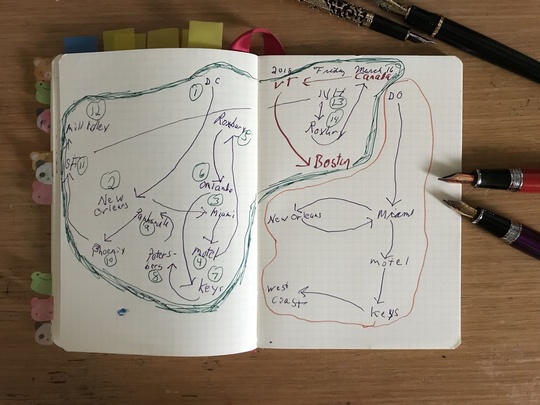 ① DC
⑫
Mill Valley
SF ⑪
②
New
Orleans
⑨
Phoenix
⑩
Peters-
burg
⑧
Roxbury
5
⑥
Orlando
③
Miami
Motel
④
⑦
Keys
2015 Friday March '16
VT Canada
13
14
Roxbury
Boston
DC
New Orleans
Miami
motel
Keys
West
Coast